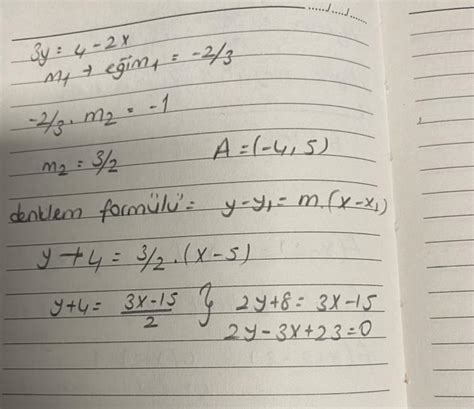 3y = 4-2x
m₁ → eğim₁ = -2/3
-2/3 . m₂ = -1
m₂ = 3/2 A = (-4, 5)
denklem formülü = y-y₁ = m.(x-x₁)
y+4 = 3/2 . (x-5)
y+4 = 3x-15/2 } 2y+8 = 3x-15
2y-3x+23=0